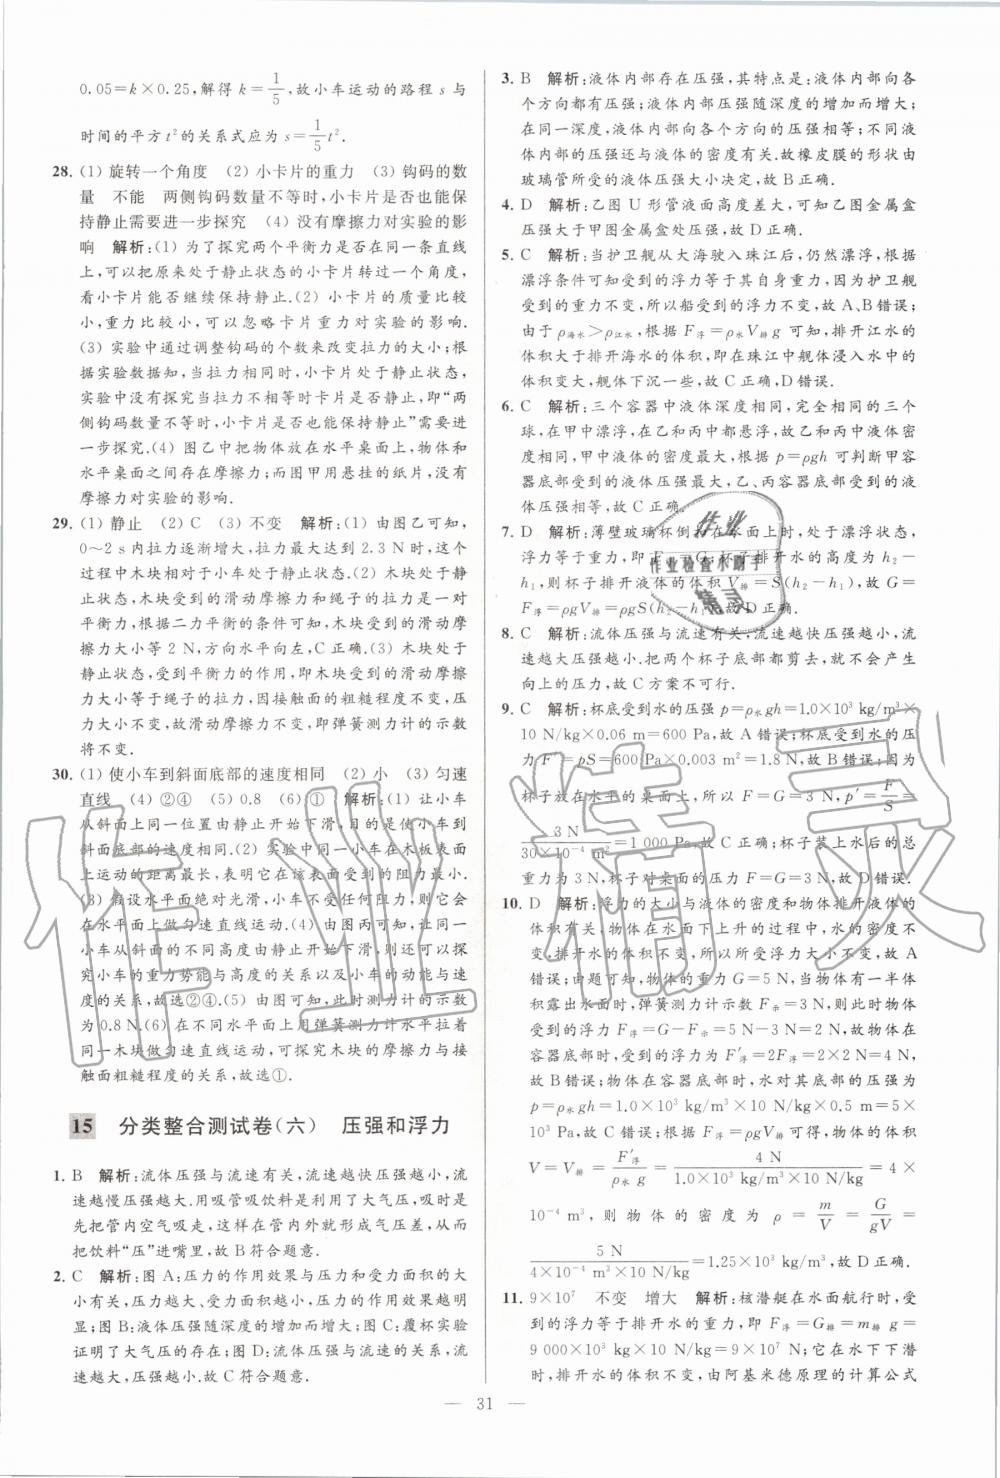 0.05=k×0.25,解得 k=1/5,故小车运动的路程 s 与
时间的平方 t²的关系式应为 s=1/5t².
28. (1) 旋转一个角度 (2) 小卡片的重力 (3) 钩码的数
量 不能 两侧钩码数量不等时,小卡片是否也能保
持静止需要进一步探究 (4) 没有摩擦力对实验的影
响 解析:(1) 为了探究两个平衡力是否在同一条直线
上,可以把原来处于静止状态的小卡片转过一个角度,
看小卡片能否继续保持静止.(2) 小卡片的质量比较
小,重力比较小,可以忽略卡片重力对实验的影响.
(3) 实验中通过调整钩码的个数来改变拉力的大小;根
据实验数据知,当拉力相同时,小卡片处于静止状态,
实验中没有探究当拉力不相等时卡片是否静止,即“两
侧钩码数量不等时,小卡片是否也能保持静止”需要进
一步探究.(4) 图乙中把物体放在水平桌面上,物体和
水平桌面之间存在摩擦力;而图甲用悬挂的纸片,没有
摩擦力对实验的影响.
29. (1) 静止 (2) C (3) 不变 解析:(1) 由图乙可知,
0～2 s内拉力逐渐增大,拉力最大达到 2.3 N时,这个
过程中木块相对于小车处于静止状态.(2) 木块处于静
止状态,木块受到的滑动摩擦力和绳子的拉力是一对
平衡力,根据二力平衡的条件可知,木块受到的滑动摩
擦力大小等于 2 N,方向水平向左,C正确.(3) 木块处
于静止状态,受到平衡力的作用,木块受到的滑动摩擦
力大小等于绳子的拉力,因接触面的粗糙程度不变,压
力大小不变,故滑动摩擦力不变,即弹簧测力计的示数
将不变.
30. (1) 使小车到斜面底部的速度相同 (2) 小 (3) 匀速
直线 (4) ②④ (5) 0.8 (6) ① 解析:(1) 让小车
从斜面上同一位置由静止开始下滑,目的是使小车到
斜面底部的速度相同.(2) 实验中同一小车在木板表面
上运动的距离最长,表明它在该表面受到的阻力最小.
(3) 假设水平面绝对光滑,小车不受任何阻力,则它会
在水平面上做匀速直线运动.(4) 由图可知,让同一小
车从斜面的不同高度由静止开始下滑,则可完成探究
小车的重力势能与高度的关系以及小车的动能与速度
的关系,故选②④.(5) 由图可知,此时测力计的示数
为 0.8 N.(6) 在不同水平面上用弹簧测力计水平拉着
同一木块做匀速直线运动,可探究木块的摩擦力与接
触面粗糙程度的关系,故选①.
15 分类整合测试卷(六) 压强和浮力
1. B 解析:流体压强与流速有关,流速越快压强越小,流
速越慢压强越大.用吸管吸饮料是利用了大气压,吸时是
先把管内空气吸走,这样在管内外就形成气压差,从而
把饮料“压”进嘴里,故 B 符合题意.
2. C 解析:图 A:压力的作用效果与压力和受力面积的大
小有关,压力越大、受力面积越小,压力的作用效果越明
显;图 B:液体压强随深度的增加而增大;图 C:覆杯实验
证明了大气压的存在;图 D:流体压强与流速的关系,流速
越大,压强越小.故 C 符合题意.
3. B 解析:液体内部存在压强,其特点是:液体内部向各
个方向都有压强;液体内部压强随深度的增加而增大;
在同一深度,液体内部向各个方向的压强相等;不同液
体内部的压强还与液体的密度有关.故橡皮膜的形状由
玻璃管所受的液体压强大小决定,故 B 正确.
4. D 解析:乙图 U 形管液面高度差大,可知乙图金属盒
压强大于甲图金属盒处压强,故 D 正确.
5. C 解析:当护卫舰从大海驶入珠江后,仍然漂浮,根据
漂浮条件可知受到的浮力等于其自身重力,因为护卫舰
受到的重力不变,所以船受到的浮力不变,故 A、B 错误;
由于 ρ海水＞ρ江水,根据 F浮=ρ水V排g 可知,排开江水的
体积大于排开海水的体积,即在珠江中舰体浸入水中的
体积变大,舰体下沉一些,故 C 正确,D 错误.
6. C 解析:三个容器中液体深度相同,完全相同的三个
球,在甲中漂浮,在乙和丙中都悬浮,故乙和丙中液体密
度相同,甲中液体的密度最大,根据 p=ρgh 可判断甲容
器底部受到的液体压强最大,乙、丙容器底部受到的液
体压强相等,故 C 正确.
7. D 解析:薄壁玻璃杯倒扣在水面上时,处于漂浮状态,
浮力等于重力,即 F浮=G.杯子排开水的高度为 h₂-
h₁,则杯子排开液体的体积 V排=S(h₂-h₁),故 G=
F浮=ρgV排=ρgS(h₂-h₁),故 D 正确.
8. C 解析:流体压强与流速有关,流速越快压强越小,流
速越大压强越小.把两个杯子底部都剪去,就不会产生
向上的压力,故 C 方案不可行.
9. C 解析:杯底受到水的压强 p=ρ水gh=1.0×10³ kg/m³×
10 N/kg×0.06 m=600 Pa,故 A 错误;杯底受到水的压
力 F′=pS=600 Pa×0.003 m²=1.8 N,故 B 错误;因为
杯子放在水平的桌面上,所以 F=G=3 N,p′=F/S=
3 N/30×10⁻⁴ m²=1 000 Pa,故 C 正确;杯子装上水后的总
重力为 3 N,杯子对桌面的压力 F=G=3 N,故 D 错误.
10. D 解析:浮力的大小与液体的密度和物体排开液体的
体积有关,物体在水面下上升的过程中,水的密度不
变,排开水的体积不变,所以受浮力大小不变,故 A
错误;由题可知,物体的重力 G=5 N,当物体有一半体
积露出水面时,弹簧测力计示数 F示=3 N,则此时物体
受到的浮力 F浮=G-F示=5 N-3 N=2 N,故物体在
容器底部时,受到的浮力为 F′浮=2F浮=2×2 N=4 N,
故 B 错误;物体在容器底部时,水对其底部的压强为
p=ρ水gh=1.0×10³ kg/m³×10 N/kg×0.5 m=5×
10³ Pa,故 C 错误;根据 F浮=ρ水gV排可得,物体的体积
V=V排=F′浮/ρ水g=4 N/1.0×10³ kg/m³×10 N/kg=4×
10⁻⁴ m³,则物体的密度为 ρ=m/V=G/gV=
5 N/4×10⁻⁴ m³×10 N/kg=1.25×10³ kg/m³,故 D 正确.
11. 9×10⁷ 不变 增大 解析:核潜艇在水面航行时,受
到的浮力等于排开水的重力,即 F浮=G排=m排g=
9 000×10³ kg×10 N/kg=9×10⁷ N;它在水下下潜
时,排开水的体积不变,由阿基米德原理的计算公式
— 31 —
作业
作业检查小助手
精灵
作业精灵